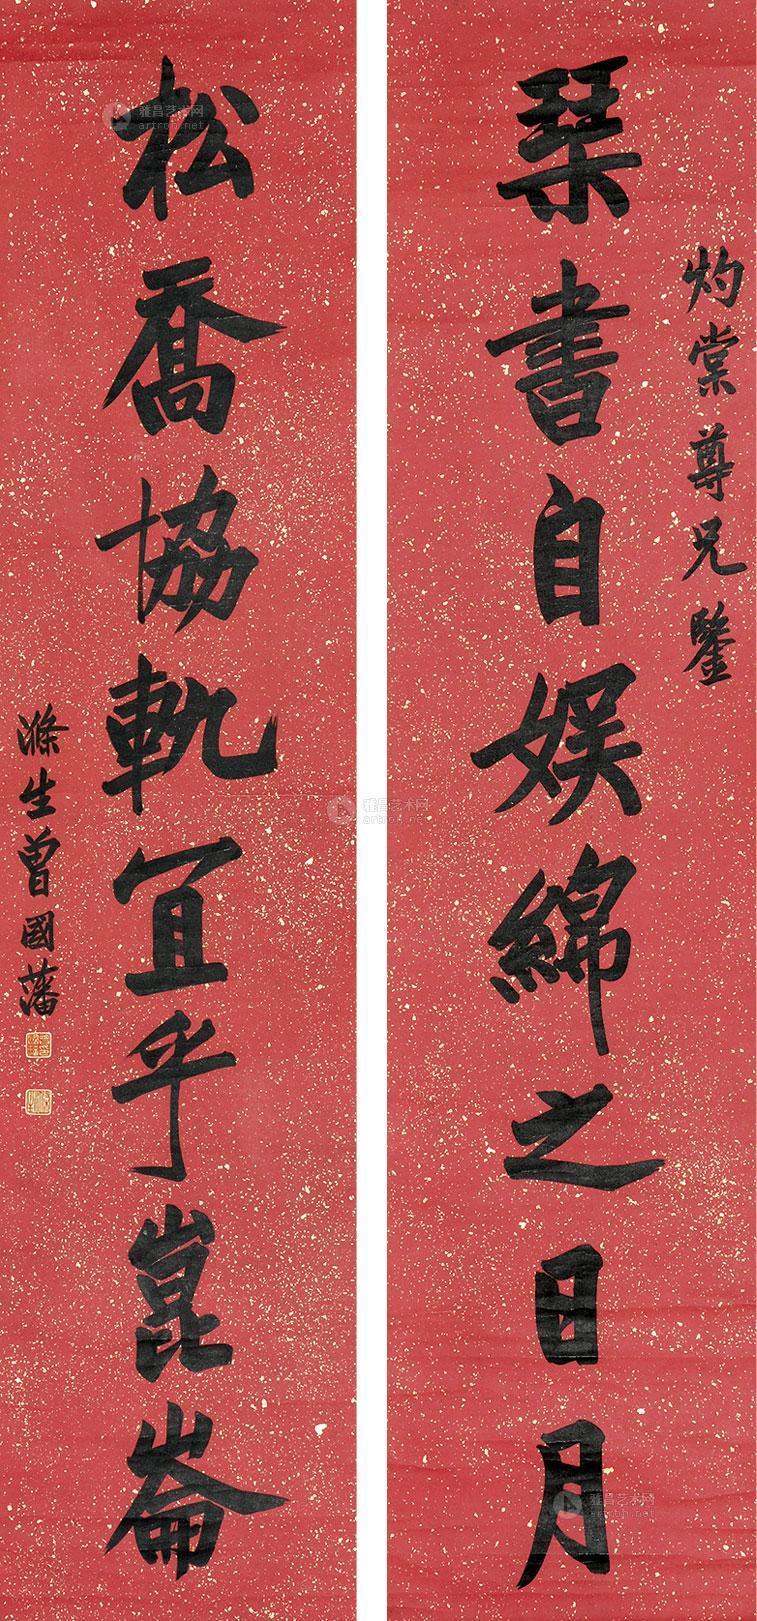 灼棠尊兄鑒
琹書自娱綿之日月
松喬協軌冝乎崑崙
滌生曾國藩
雅昌艺术网
artron.net
雅昌艺术网
artron.net
雅昌艺术网
artron.net